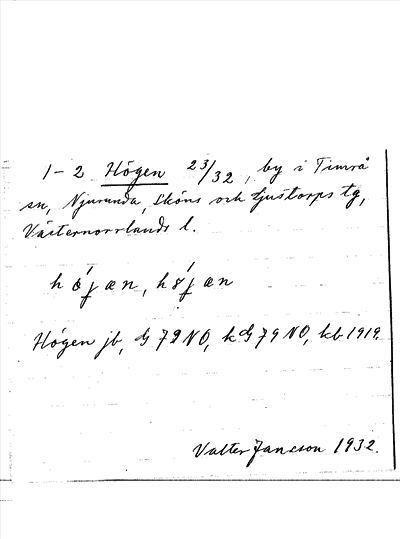 1-2 Högen 23/32, by i Timrå
sn, Njurunda, Sköns och Ljustorps tg,
Västernorrlands l.
hǿjæn, hǿjæn
Högen jb, G79NO, kG79NO, kb 1919.
Valter Jansson 1932.